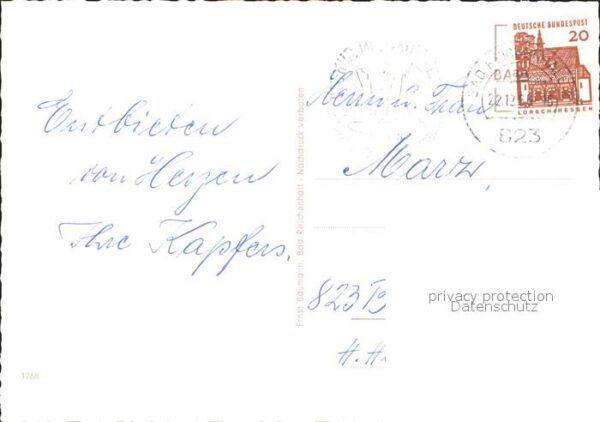 Entbieten
von Herzen
Ihre Kapfers.
1268
Ernst Baumann, Bad Reichenhall - Nachdruck verboten
DEUTSCHE BUNDESPOST
20
LORSCH/HESSEN
823
Herrn u. Frau
Marx,
823 B
H.H.
privacy protection
Datenschutz